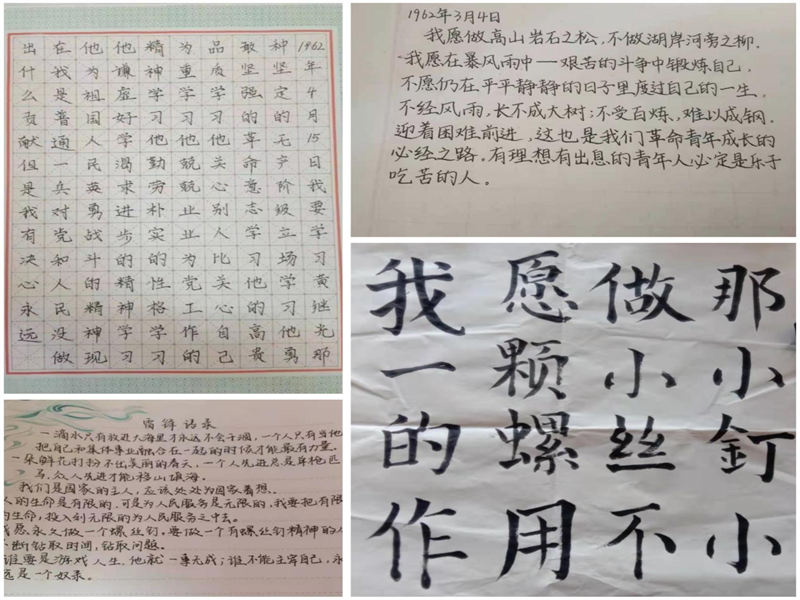 1962年4月15日我要学习黄继光那
种坚定的无产阶级立场学习他勇
敢坚强的革命意志学习他的高贵
品质学习他关心别人比关心自己
为重学习他兢兢业业为党工作的
精神学习他勤劳朴实的性格学习
他谦虚好学渴求进步的精神学习
他为祖国人民英勇战斗的精神现
在我是普通一兵对党和人民没做
出什么贡献但是我有决心永远
1962年3月4日
我愿做高山岩石之松,不做湖岸河旁之柳.
我愿在暴风雨中一艰苦的斗争中锻炼自己,
不愿仍在平平静静的日子里度过自己的一生.
不经风雨,长不成大树;不受百炼,难以成钢.
迎着困难前进,这也是我们革命青年成长的
必经之路。有理想有出息的青年人必定是乐于
吃苦的人。
语录
一滴水只有放进大海里才永远不会干涸,一个人只有当他
把自己和集体事业融合在一起的时候才能最有力量。
一朵鲜花打扮不出美丽的春天,一个人先进总是单枪匹
马,众人先进才能移山填海。
我们是国家的主人,应该处处为国家着想。
人的生命是有限的,可是为人民服务是无限的,我要把有限
的生命,投入到无限的为人民服务之中去。
我愿永久做一个螺丝钉。要做一个有螺丝钉精神的人
不断钻取时间,钻取问题。
谁要是游戏人生,他就一事无成;谁不能主宰自己,永
远是一个奴隶。
我愿做那
一颗小小
的螺丝钉
作用不小